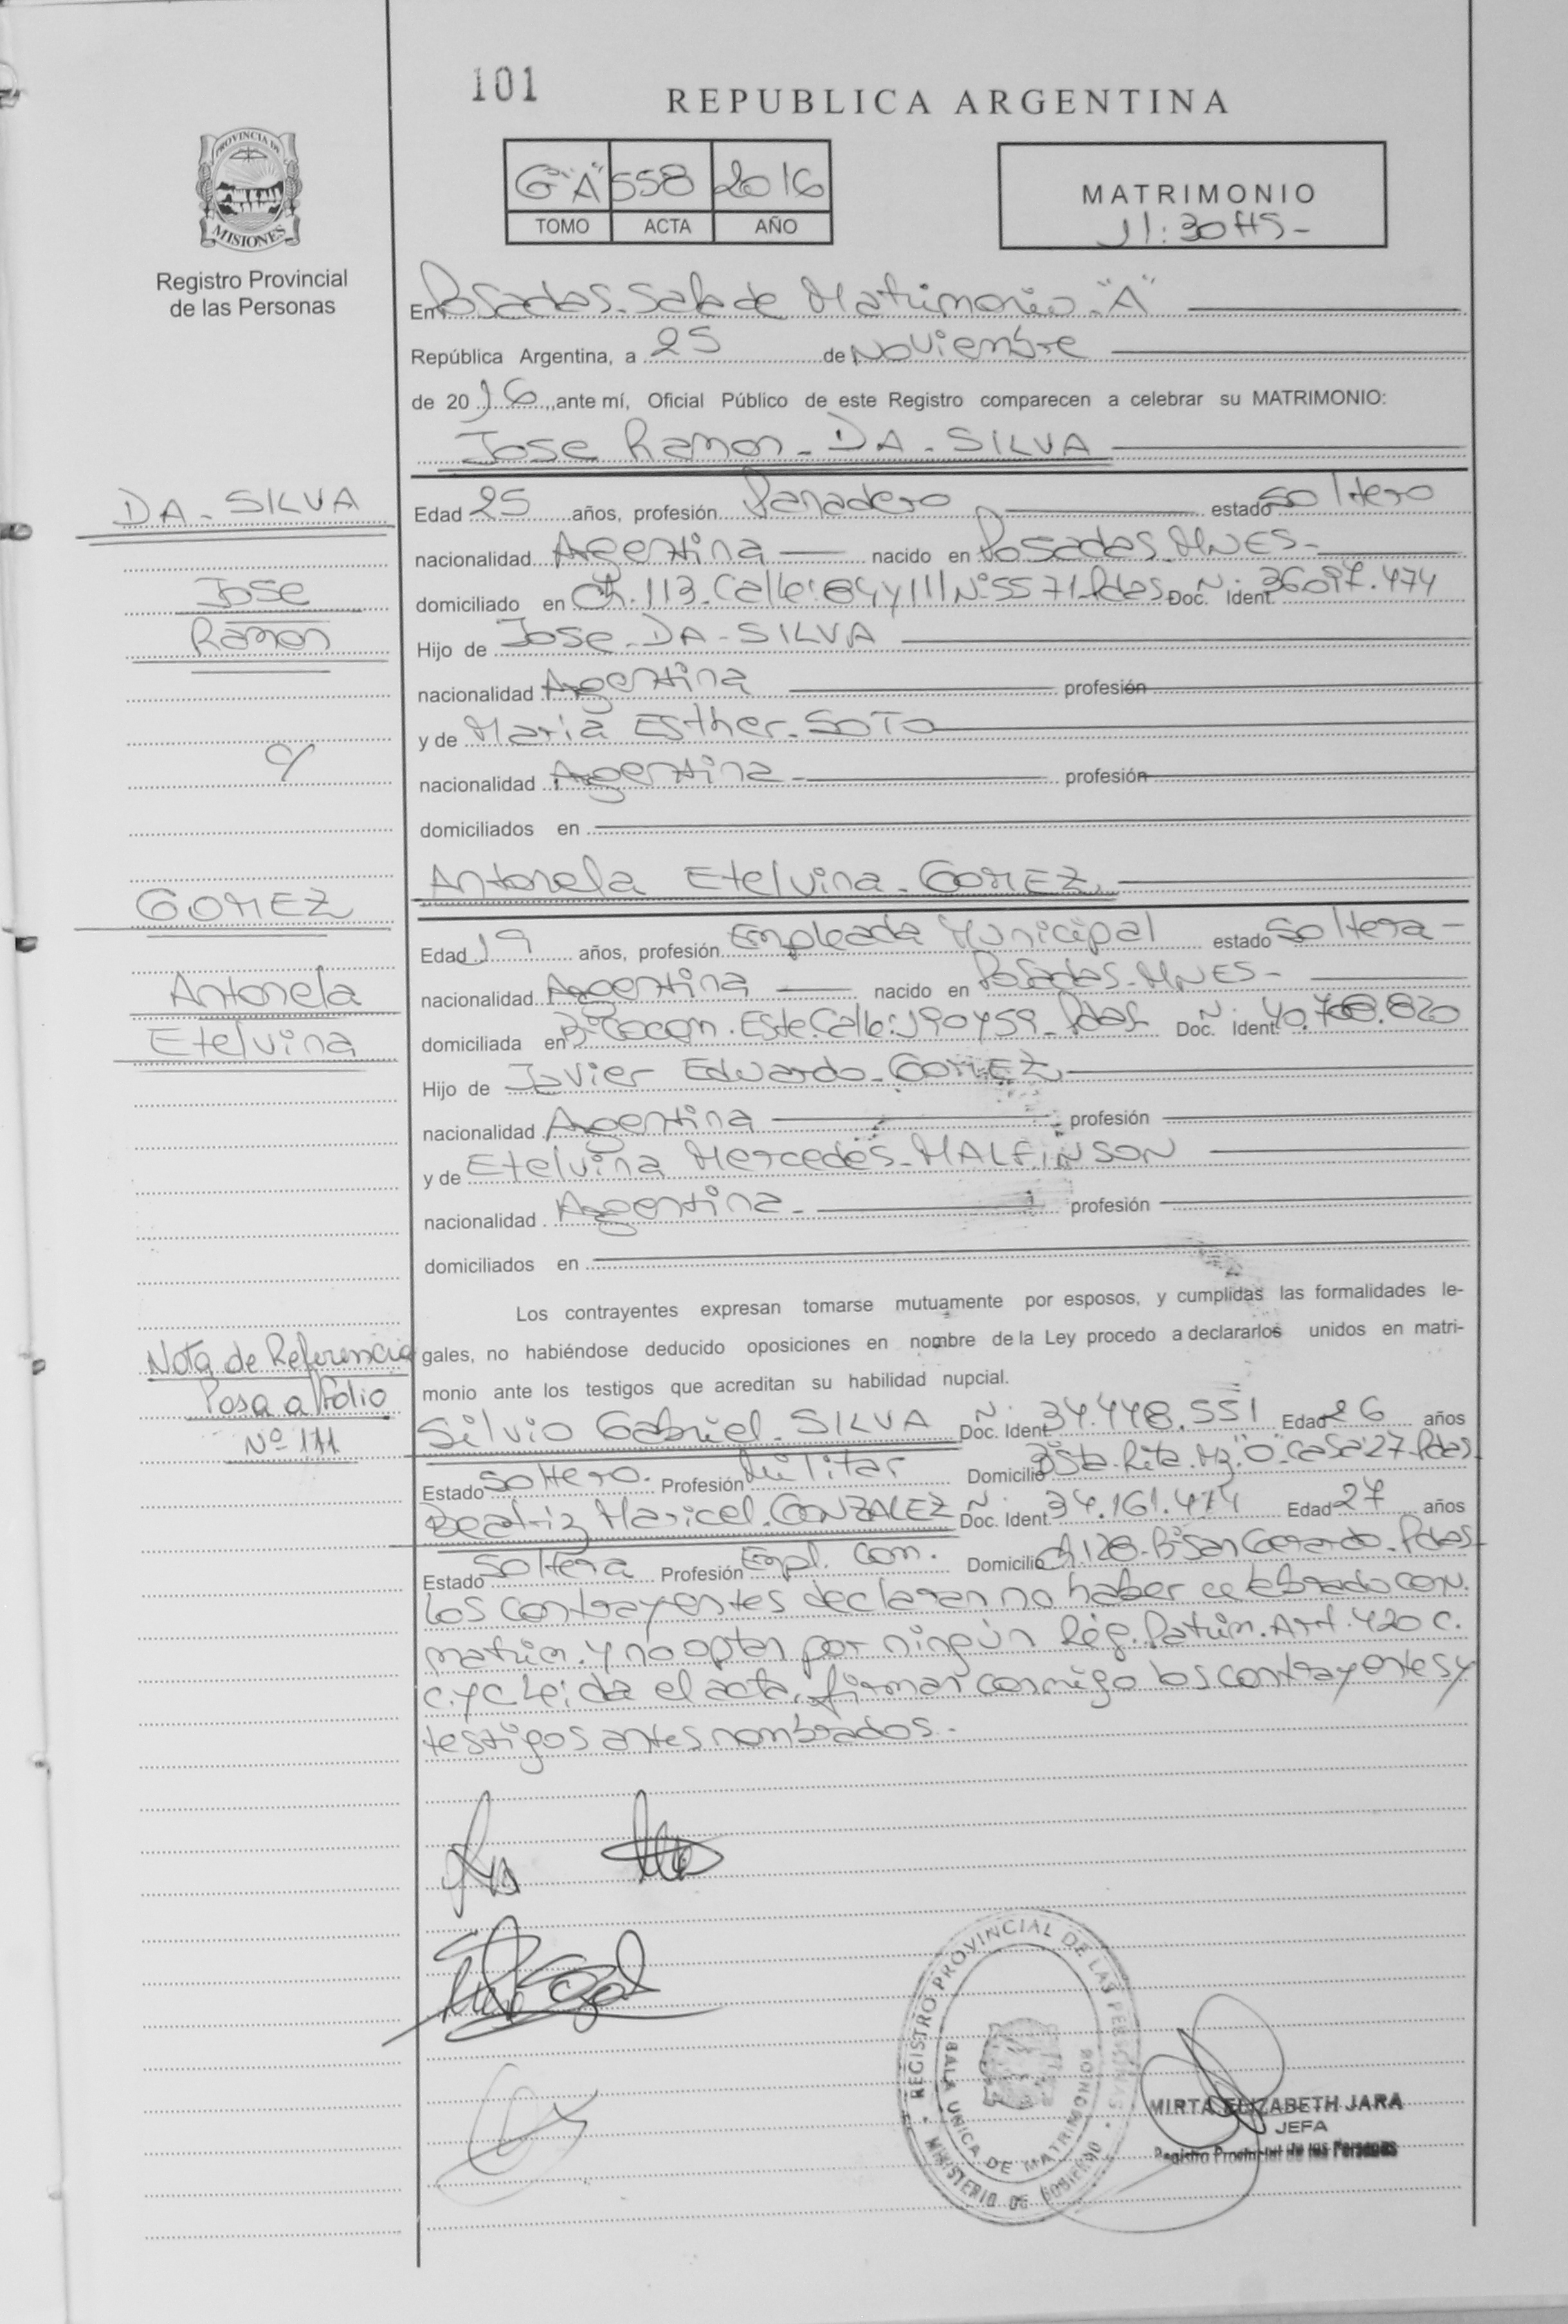 101
REPUBLICA ARGENTINA
PROVINCIA DE
MISIONES
Registro Provincial
de las Personas
6º"A" 558 2016
TOMO ACTA AÑO
MATRIMONIO
11:30 HS-
En Posadas-Sala de Matrimonio-"A"
República Argentina, a 25 de Noviembre
de 2016, ante mí, Oficial Público de este Registro comparecen a celebrar su MATRIMONIO:
Jose Ramon-DA-SILVA
DA-SILVA
Jose
Ramon
c/
GOMEZ
Antonela
Etelvina
Edad 25 años, profesión Panadero estado Soltero
nacionalidad Argentina nacido en Posadas-MNES-
domiciliado en Ch.113-Calle:84y111Nº5571-Pdas Doc. Nº Ident. 36.097.474
Hijo de Jose-DA-SILVA
nacionalidad Argentina profesión
y de Maria Esther-SOTO
nacionalidad Argentina- profesión
domiciliados en
Antonela Etelvina-GOMEZ
Edad 19 años, profesión Empleada Municipal estado Soltera-
nacionalidad Argentina nacido en Posadas-MNES-
domiciliada en Bº Cocom. Este.Calle:190y59-Pdas- Doc. Nº Ident.
Hijo de Javier Eduardo-GOMEZ
nacionalidad Argentina profesión
y de Etelvina Mercedes-MALFINSON
nacionalidad Argentina- profesión
domiciliados en
Los contrayentes expresan tomarse mutuamente por esposos, y cumplidas las formalidades le-
gales, no habiéndose deducido oposiciones en nombre de la Ley procedo a declararlos unidos en matri-
monio ante los testigos que acreditan su habilidad nupcial.
Nota de Referencia
Pasa al folio
Nº 111
Silvio Gabriel-SILVA Doc. Nº Ident. 34.448.551 Edad 26 años
Estado Soltero. Profesión Militar Domicilio Bº Sta.Rita.Mz."O"-Casa:27-Pdas-
Beatriz Maricel-GONZALEZ Doc. Nº Ident. 34.161.474 Edad 27 años
Estado Soltera Profesión Empl. Com. Domicilio Ch.128-Bº San Gerardo-Pdas-
Los contrayentes declaran no haber celebrado con.
matrim. y no optan por ningún Rég.Patrim.Art.420 C.
C.y C Leida el acta, firman conmigo los contrayentes y
testigos antes nombrados-
REGISTRO PROVINCIAL DE LAS PERSONAS
SALA UNICA DE MATRIMONIOS
MINISTERIO DE GOBIERNO
MIRTA ELIZABETH JARA
JEFA
Registro Provincial de las Personas